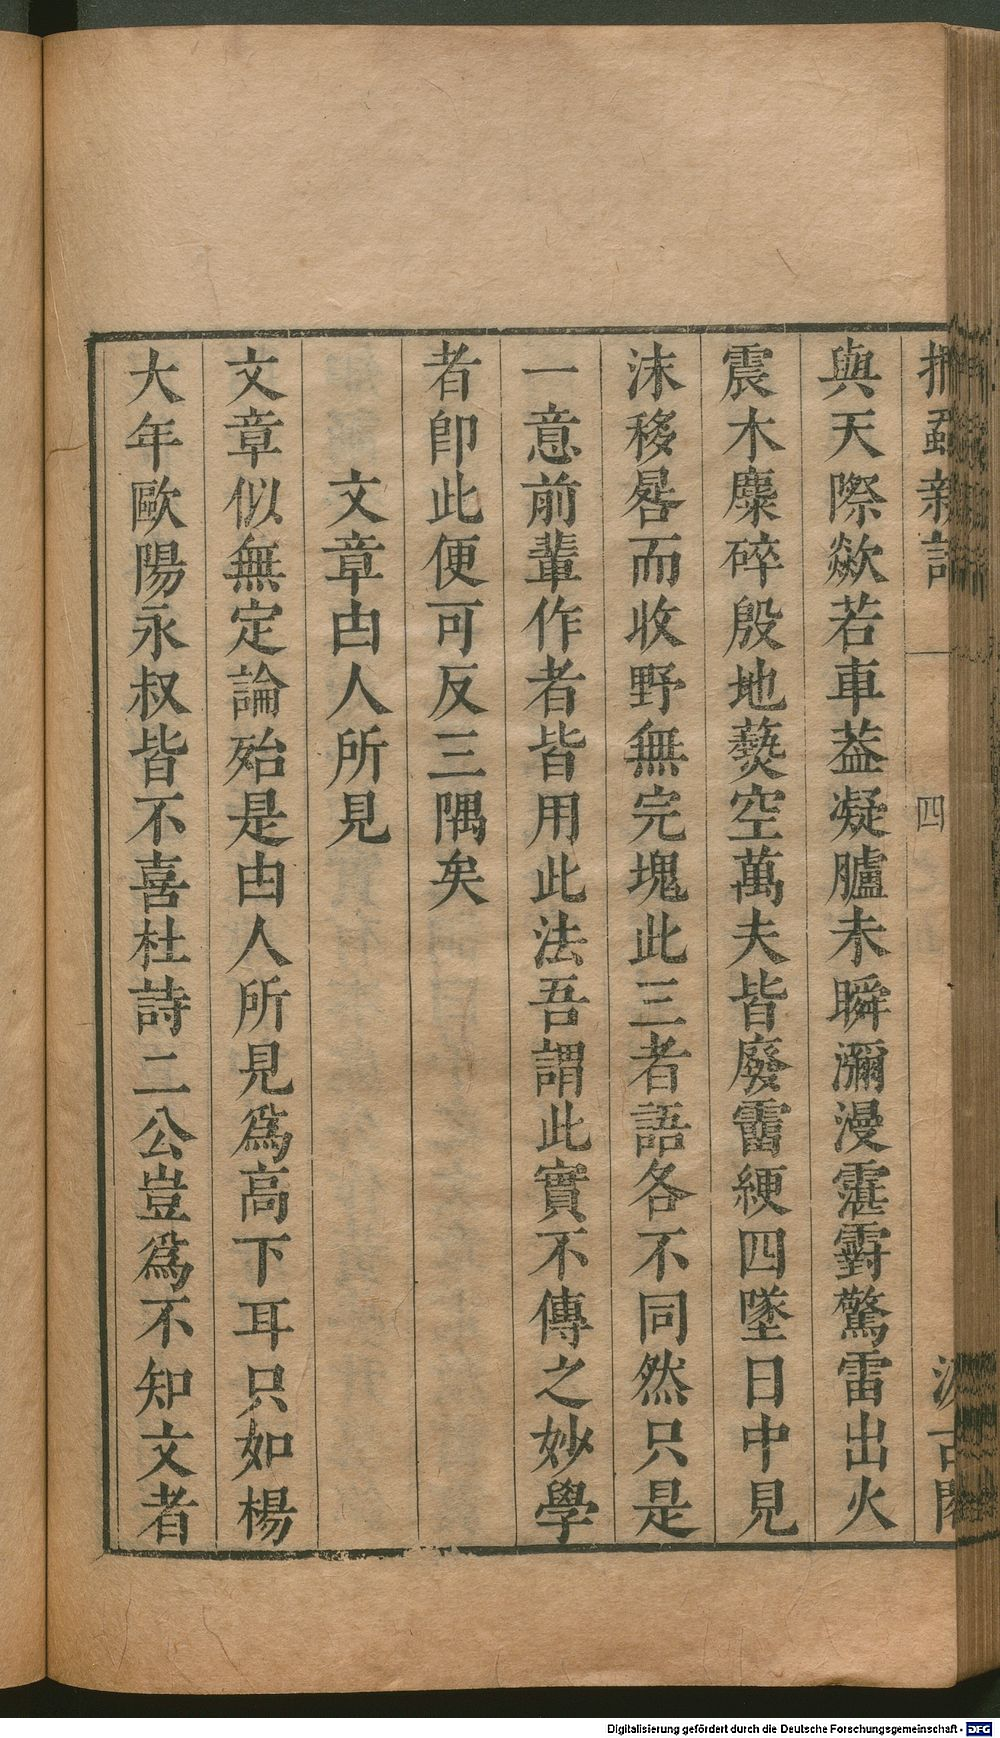 捫蝨新話 四 汲古閣
與天際歘若車葢凝臚未瞬瀰漫霮䨴驚雷出火
震木麋碎殷地爇空萬夫皆廢霤綆四墜日中見
沬移晷而收野無完塊此三者語各不同然只是
一意前輩作者皆用此法吾謂此實不傳之妙學
者卽此便可反三隅矣
文章由人所見
文章似無定論殆是由人所見爲高下耳只如楊
大年歐陽永叔皆不喜杜詩二公豈爲不知文者
Digitalisierung gefördert durch die Deutsche Forschungsgemeinschaft - DFG